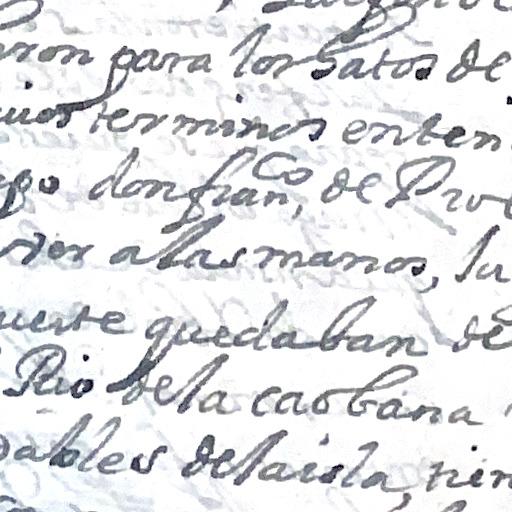 ron para los hatos de
terminos enten
go don fran.co de Pro
der a las manos, su
uerte quedaban de
Rio de la caobana
dables de la isla, tien